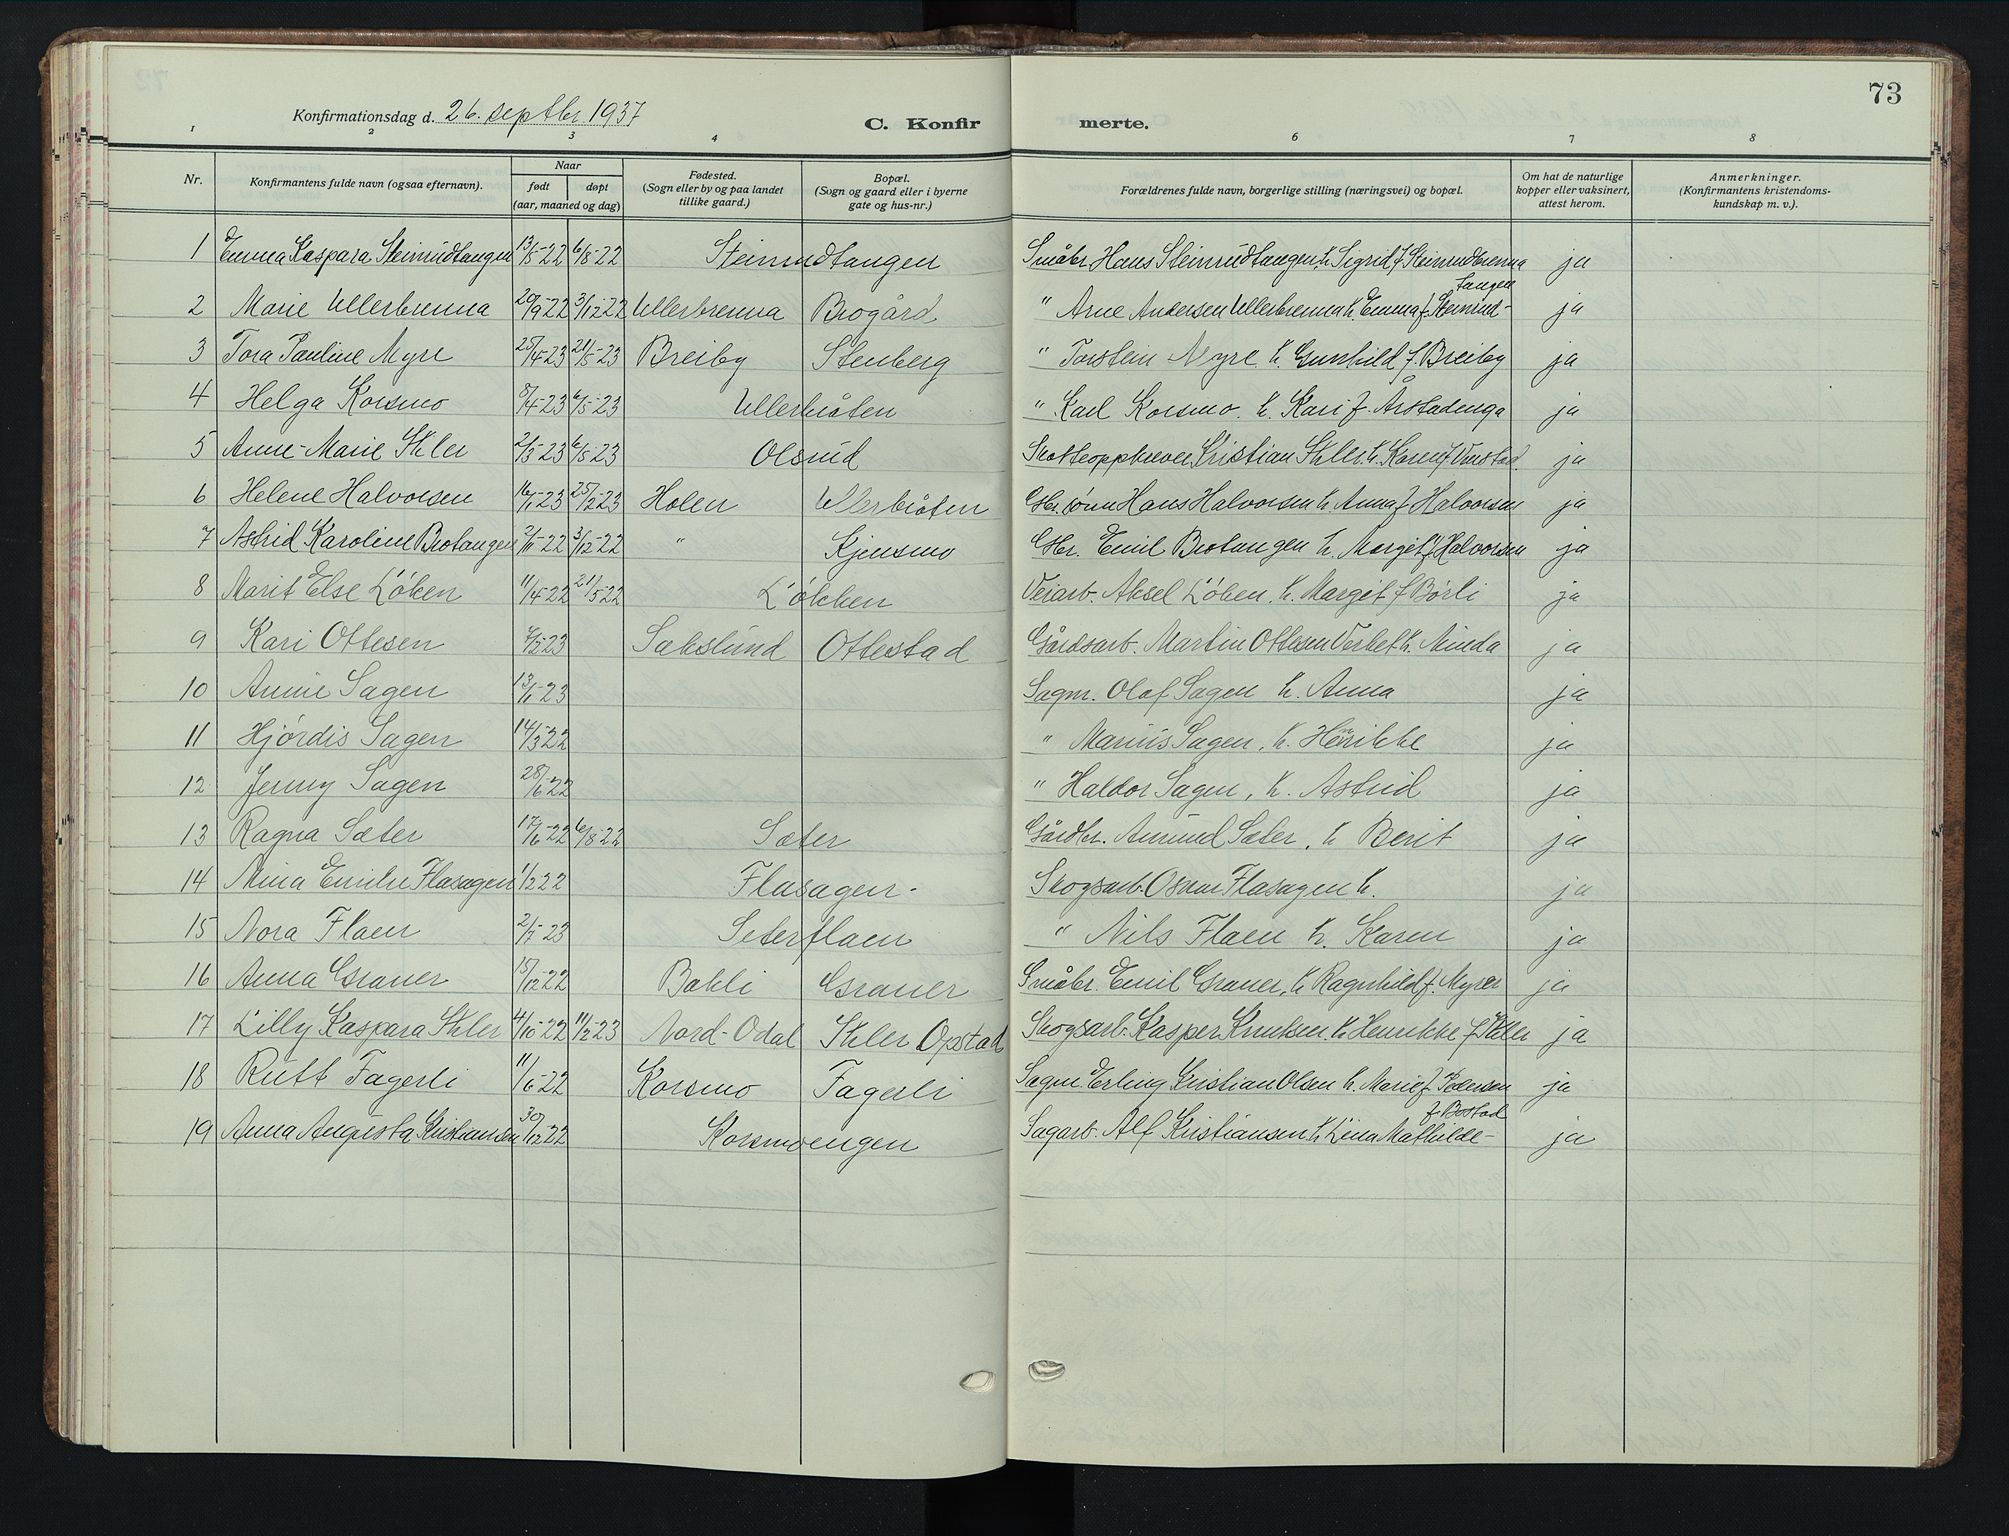 73
Konfirmationsdag d. 26. septbr. 1937
C. Konfirmerte.
1 2 3 4 5 6 7 8
Nr.
Konfirmantens fulde navn (ogsaa efternavn).
Naar
født døpt
(aar, maaned og dag)
Fødested.
(Sogn eller by og paa landet
tillike gaard.)
Bopæl.
(Sogn og gaard eller i byerne
gate og hus-nr.)
Forældrenes fulde navn, borgerlige stilling (næringsvei) og bopæl.
Om hat de naturlige
kopper eller vaksinert,
attest herom.
Anmerkninger.
(Konfirmantens kristendoms-
kundskap m. v.).
1 Emma Kaspara Steinrudtangen 13/5-22 6/8-22 Steinrudtangen Småbr. Hans Steinrudtangen h. Sigrid f. Steinrudbrenna ja
2 Marie Ullerbrenna 20/9-22 3/12-22 Ullerbrenna Brogård " Arne Andersen Ullerbrenna h. Emma f. Steinrud- tangen ja
3 Tora Pauline Myre 25/4-23 21/5-23 Breiby Stenberg " Torstein Myre h. Gunhild f. Breiby ja
4 Helga Korsmo 8/4-23 6/5-23 Ullerbråten " Karl Korsmo. h. Kari f. Årstadenga ja
5 Anne-Marie Skler 2/3-23 6/5-23 Olsrud Skatteoppkrever Kristian Skler. h. Karen f. ja
6 Helene Halvorsen 16/1-23 25/2-23 Holen Ullerbråten Gbr. sønn Hans Halvorsen h. Anna f. Halvorsen ja
7 Astrid Karoline Brotangen 2/11-22 3/12-22 " Kjensmo Gbr. Emil Brotangen h. Margit f. Halvorsen ja
8 Marit Else Løken 11/4-22 21/5-22 Løkken Veiarb. Aksel Løken. h. Margit f. Børli ja
9 Kari Ottesen 2-23 Sakslund Ottestad Gårdsarb. Martin Ottesen Verket h. Minda ja
10 Annie Sagen 13/1-23 Sagm. Olaf Sagen h. Anna ja
11 Hjørdis Sagen 14/3-22 " Marius Sagen, h. Henrikke ja
12 Jenny Sagen 28/6-22 " Haldor Sagen, h. Astrid ja
13 Ragna Sæter 17/6-22 6/8-22 Sæter Gårdbr. Amund Sæter, h. Berit ja
14 Mina Emilie Flasagen 1/2 22 Flasagen. Skogsarb. Osvar Flasagen h. ja
15 Nora Flaen 2/7-23 Seterflaen " Nils Flaen h. Karen ja
16 Anna Graner 15/12-22 Bakli Graner Småbr. Emil Graner, h. Ragnhild f. Myrer ja
17 Lilly Kaspara Skler 4/10-22 11/2-23 Nord-Odal Skler Opstad Skogsarb. Kasper Knutsen. h. Henrikke f. Skler ja
18 Rutt Fagerli 11/6-22 Korsmo Fagerli Sagm. Erling Kristian Olsen h. Marie f. Pedersen ja
19 Anna Augusta Kristiansen 30/12-22 Korsmoengen Sagarb. Alf Kristiansen h. Lina Mathilde- f. Bostad ja